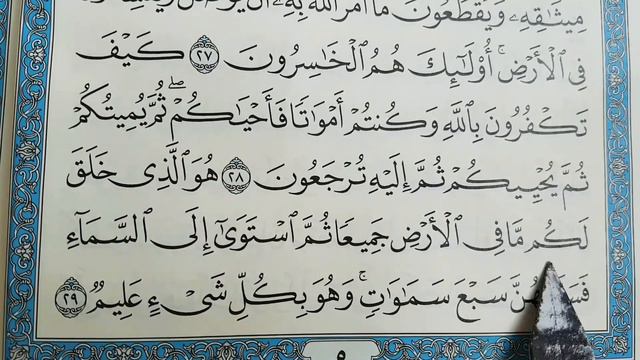 مِيثَٰقِهِۦ وَيَقْطَعُونَ مَآ أَمَرَ ٱللَّهُ بِهِۦٓ أَن
فِي ٱلْأَرْضِۚ أُوْلَٰٓئِكَ هُمُ ٱلْخَٰسِرُونَ ٢٧ كَيْفَ
تَكْفُرُونَ بِٱللَّهِ وَكُنتُمْ أَمْوَٰتًا فَأَحْيَٰكُمْۖ ثُمَّ يُمِيتُكُمْ
ثُمَّ يُحْيِيكُمْ ثُمَّ إِلَيْهِ تُرْجَعُونَ ٢٨ هُوَ ٱلَّذِي خَلَقَ
لَكُم مَّا فِي ٱلْأَرْضِ جَمِيعًا ثُمَّ ٱسْتَوَىٰٓ إِلَى ٱلسَّمَآءِ
سَبْعَ سَمَٰوَٰتٖۚ وَهُوَ بِكُلِّ شَيْءٍ عَلِيمٞ ٢٩